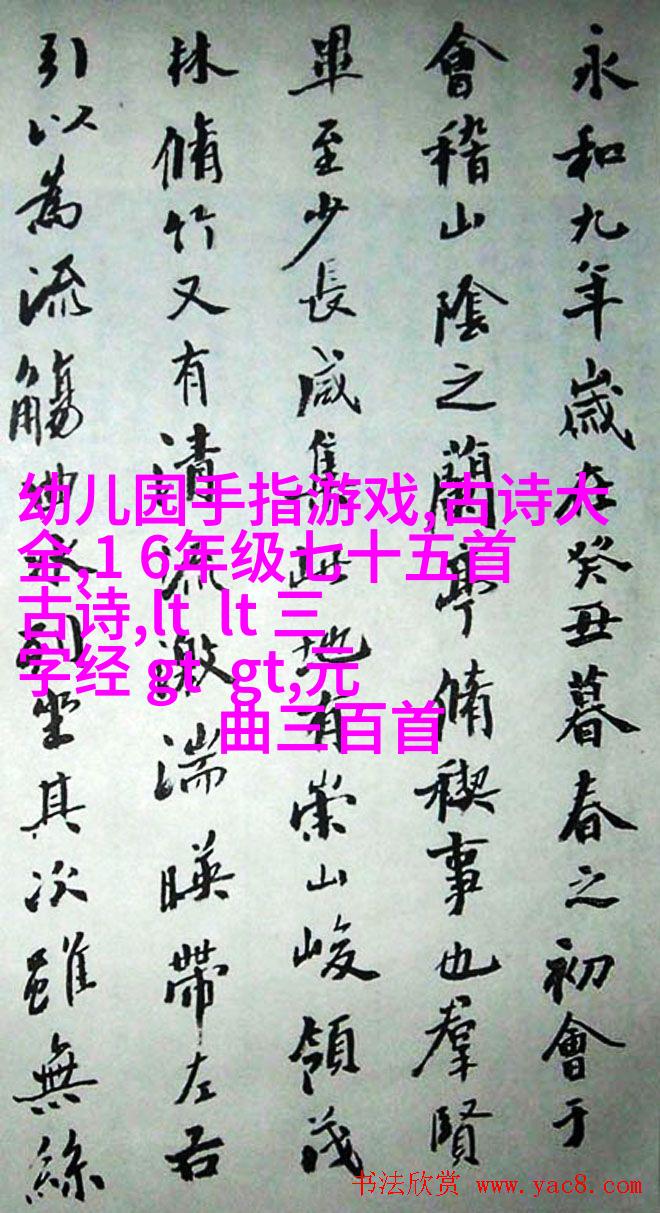 永和九年歲在癸丑暮春之初會于
會稽山陰之蘭亭脩稧事也羣賢
畢至少長咸集此地有崇山峻領茂
林脩竹又有清流激湍暎帶左右
引以為流觴曲水列坐其次雖無絲
幼儿园手指游戏,古诗大
全,1 6年级七十五首
古诗,lt lt 三
字经 gt gt,元
曲三百首
书法欣赏 www.yac8.com